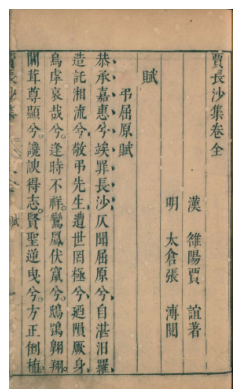 賈長沙集卷全
漢　雒陽賈　誼著
明　太倉張　溥閱
賦
弔屈原賦
恭承嘉惠兮竢罪長沙仄聞屈原兮自湛汨羅
造託湘流兮敬弔先生遭世罔極兮廼隕厥身
烏虖哀哉兮逢時不祥鸞鳳伏竄兮鴟鴞翱翔
闒茸尊顯兮讒諛得志賢聖逆曳兮方正倒植
賈長沙集
賦